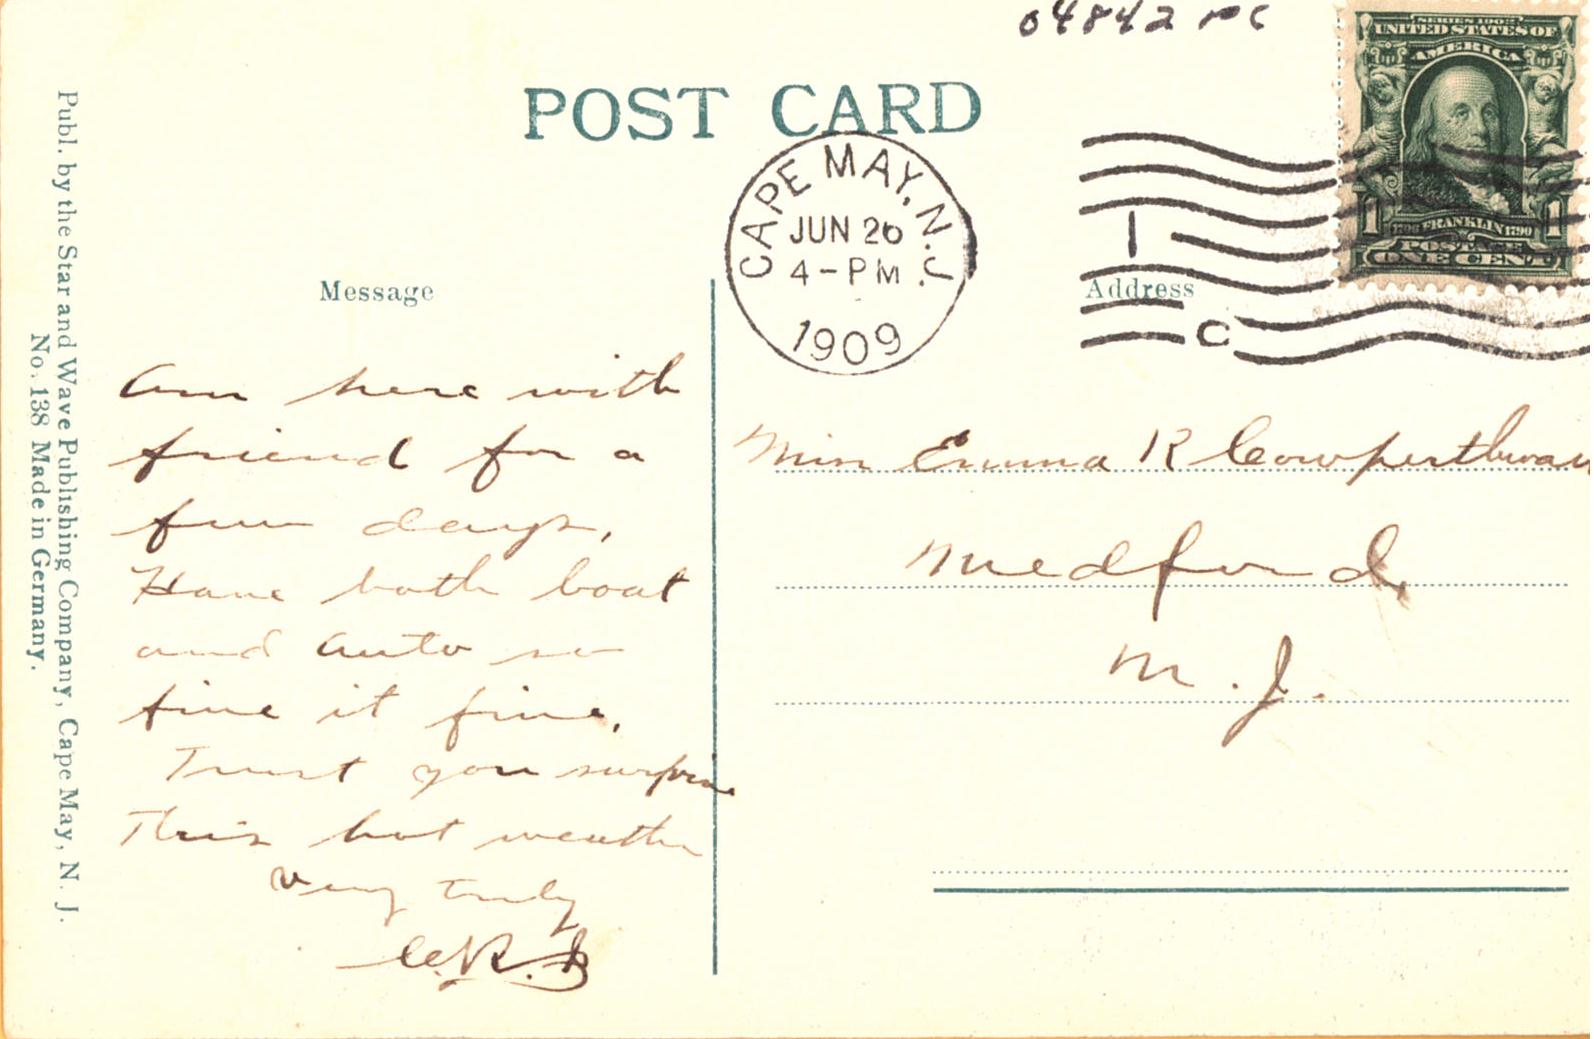 04842 PC
POST CARD
SERIES 1902
UNITED STATES OF
AMERICA
1 1
1706 FRANKLIN 1790
POSTAGE
ONE CENT
CAPE MAY, N.J.
JUN 26
4-PM
1909
1
C
Message
Address
Am here with
friend for a
few days,
Have both boat
and auto so
fine it fine.
Trust you surprise
This hot weather
Very truly
Miss Emma R Cowperthwai
Medford,
N. J.
Publ. by the Star and Wave Publishing Company, Cape May, N. J.
No. 138 Made in Germany.